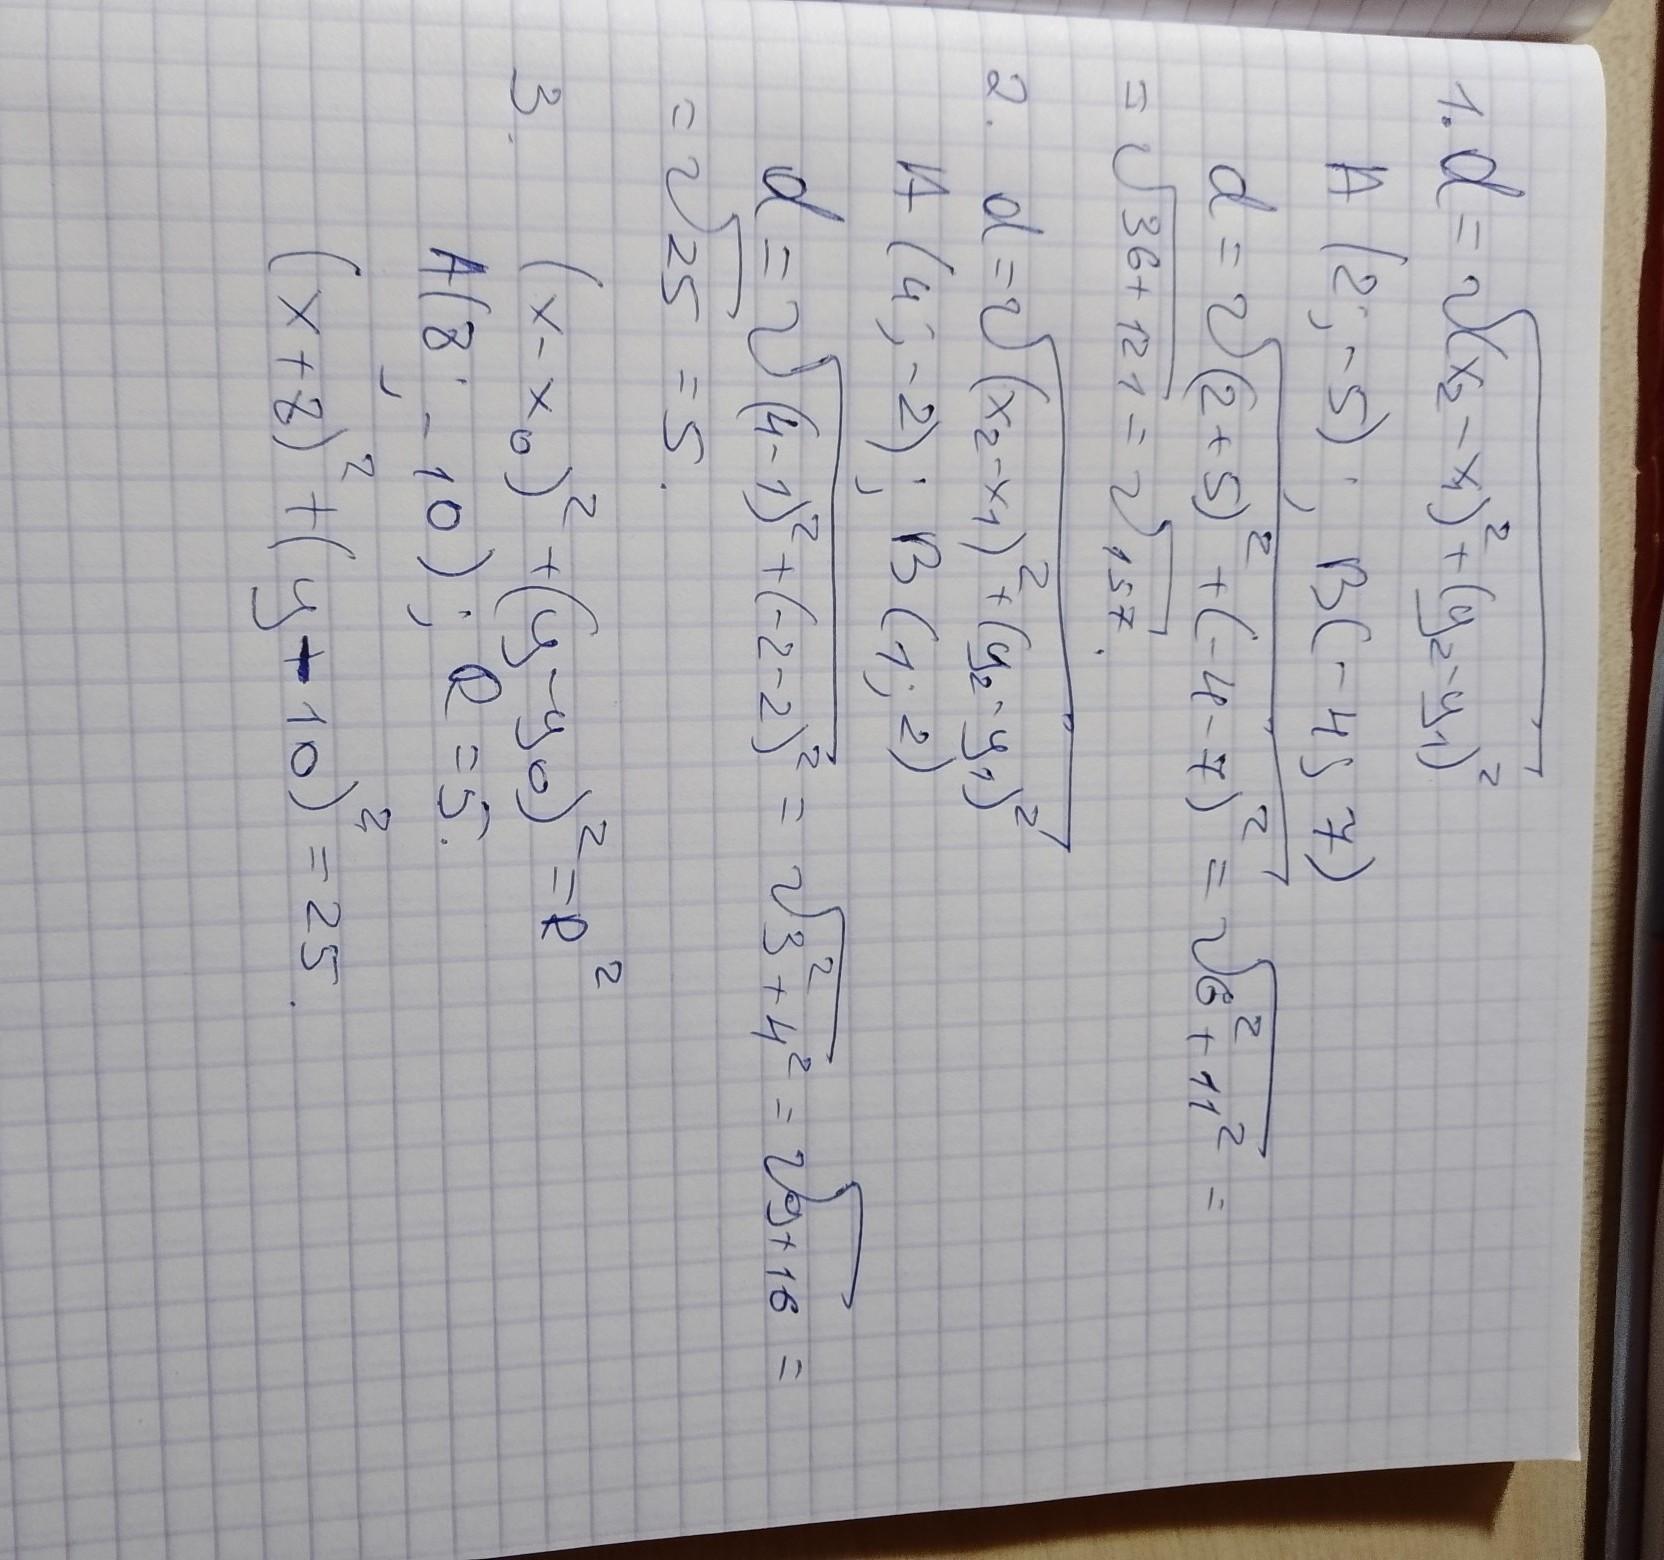 1. d = √(x₂ - x₁)² + (y₂ - y₁)²
A (2; -5); B (-4; 7)
d = √(2 + 5)² + (-4 - 7)² = √6² + 11² =
= √36 + 121 = √157.
2. d = √(x₂ - x₁)² + (y₂ - y₁)²
A (4; -2); B (1; 2)
d = √(4 - 1)² + (-2 - 2)² = √3² + 4² = √9 + 16 =
= √25 = 5.
3. (x - x₀)² + (y - y₀)² = R²
A (8; -10); R = 5.
(x + 8)² + (y + 10)² = 25.